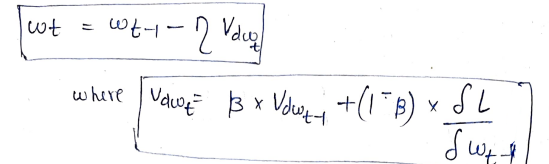 ωt = ωt-1 - η Vdωt
where Vdωt = β × Vdωt-1 + (1-β) × δL / δωt-1